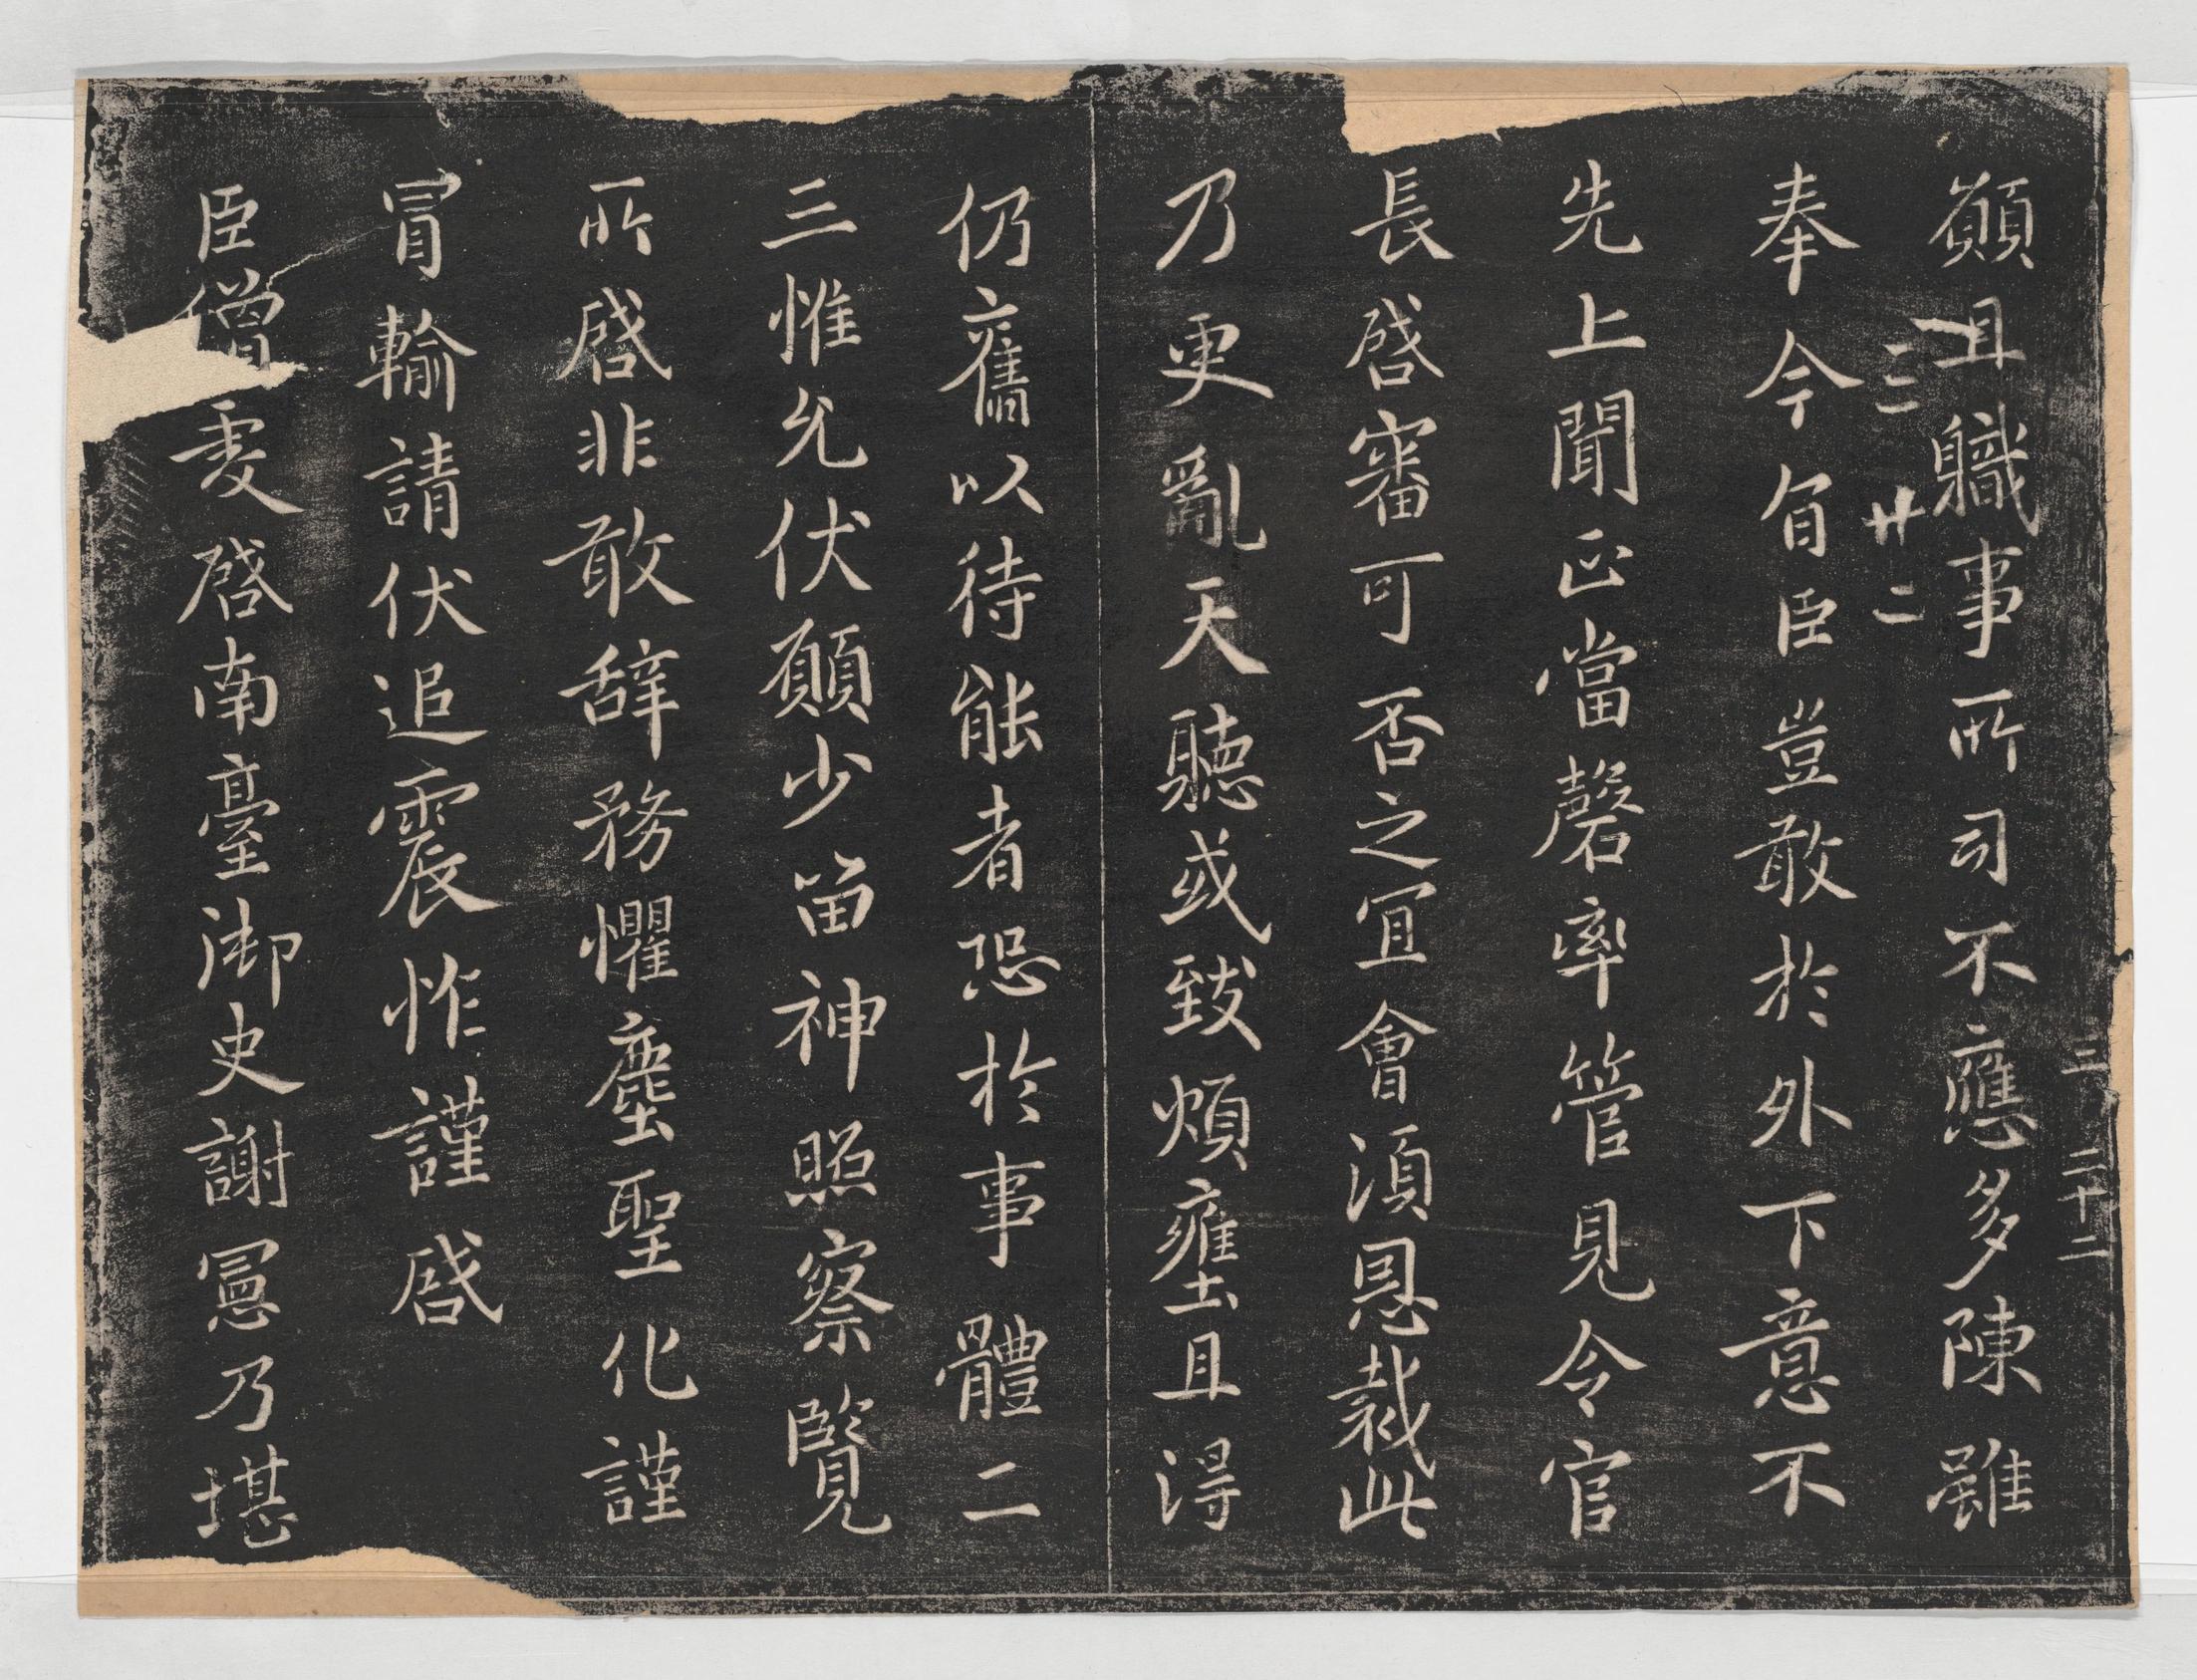 三 二十二
願且職事所司不應多陳雖
三 廿二
奉今旨臣豈敢於外下意不
先上聞正當罄率管見令官
長啓審可否之宜會須恩裁此
乃更亂天聽或致煩壅且得
仍舊以待能者恐於事體二
三惟允伏願少留神照察覽
所啓非敢辭務懼塵聖化謹
冒輸請伏追震怍謹啓
臣僧虔啓南臺御史謝憲乃堪